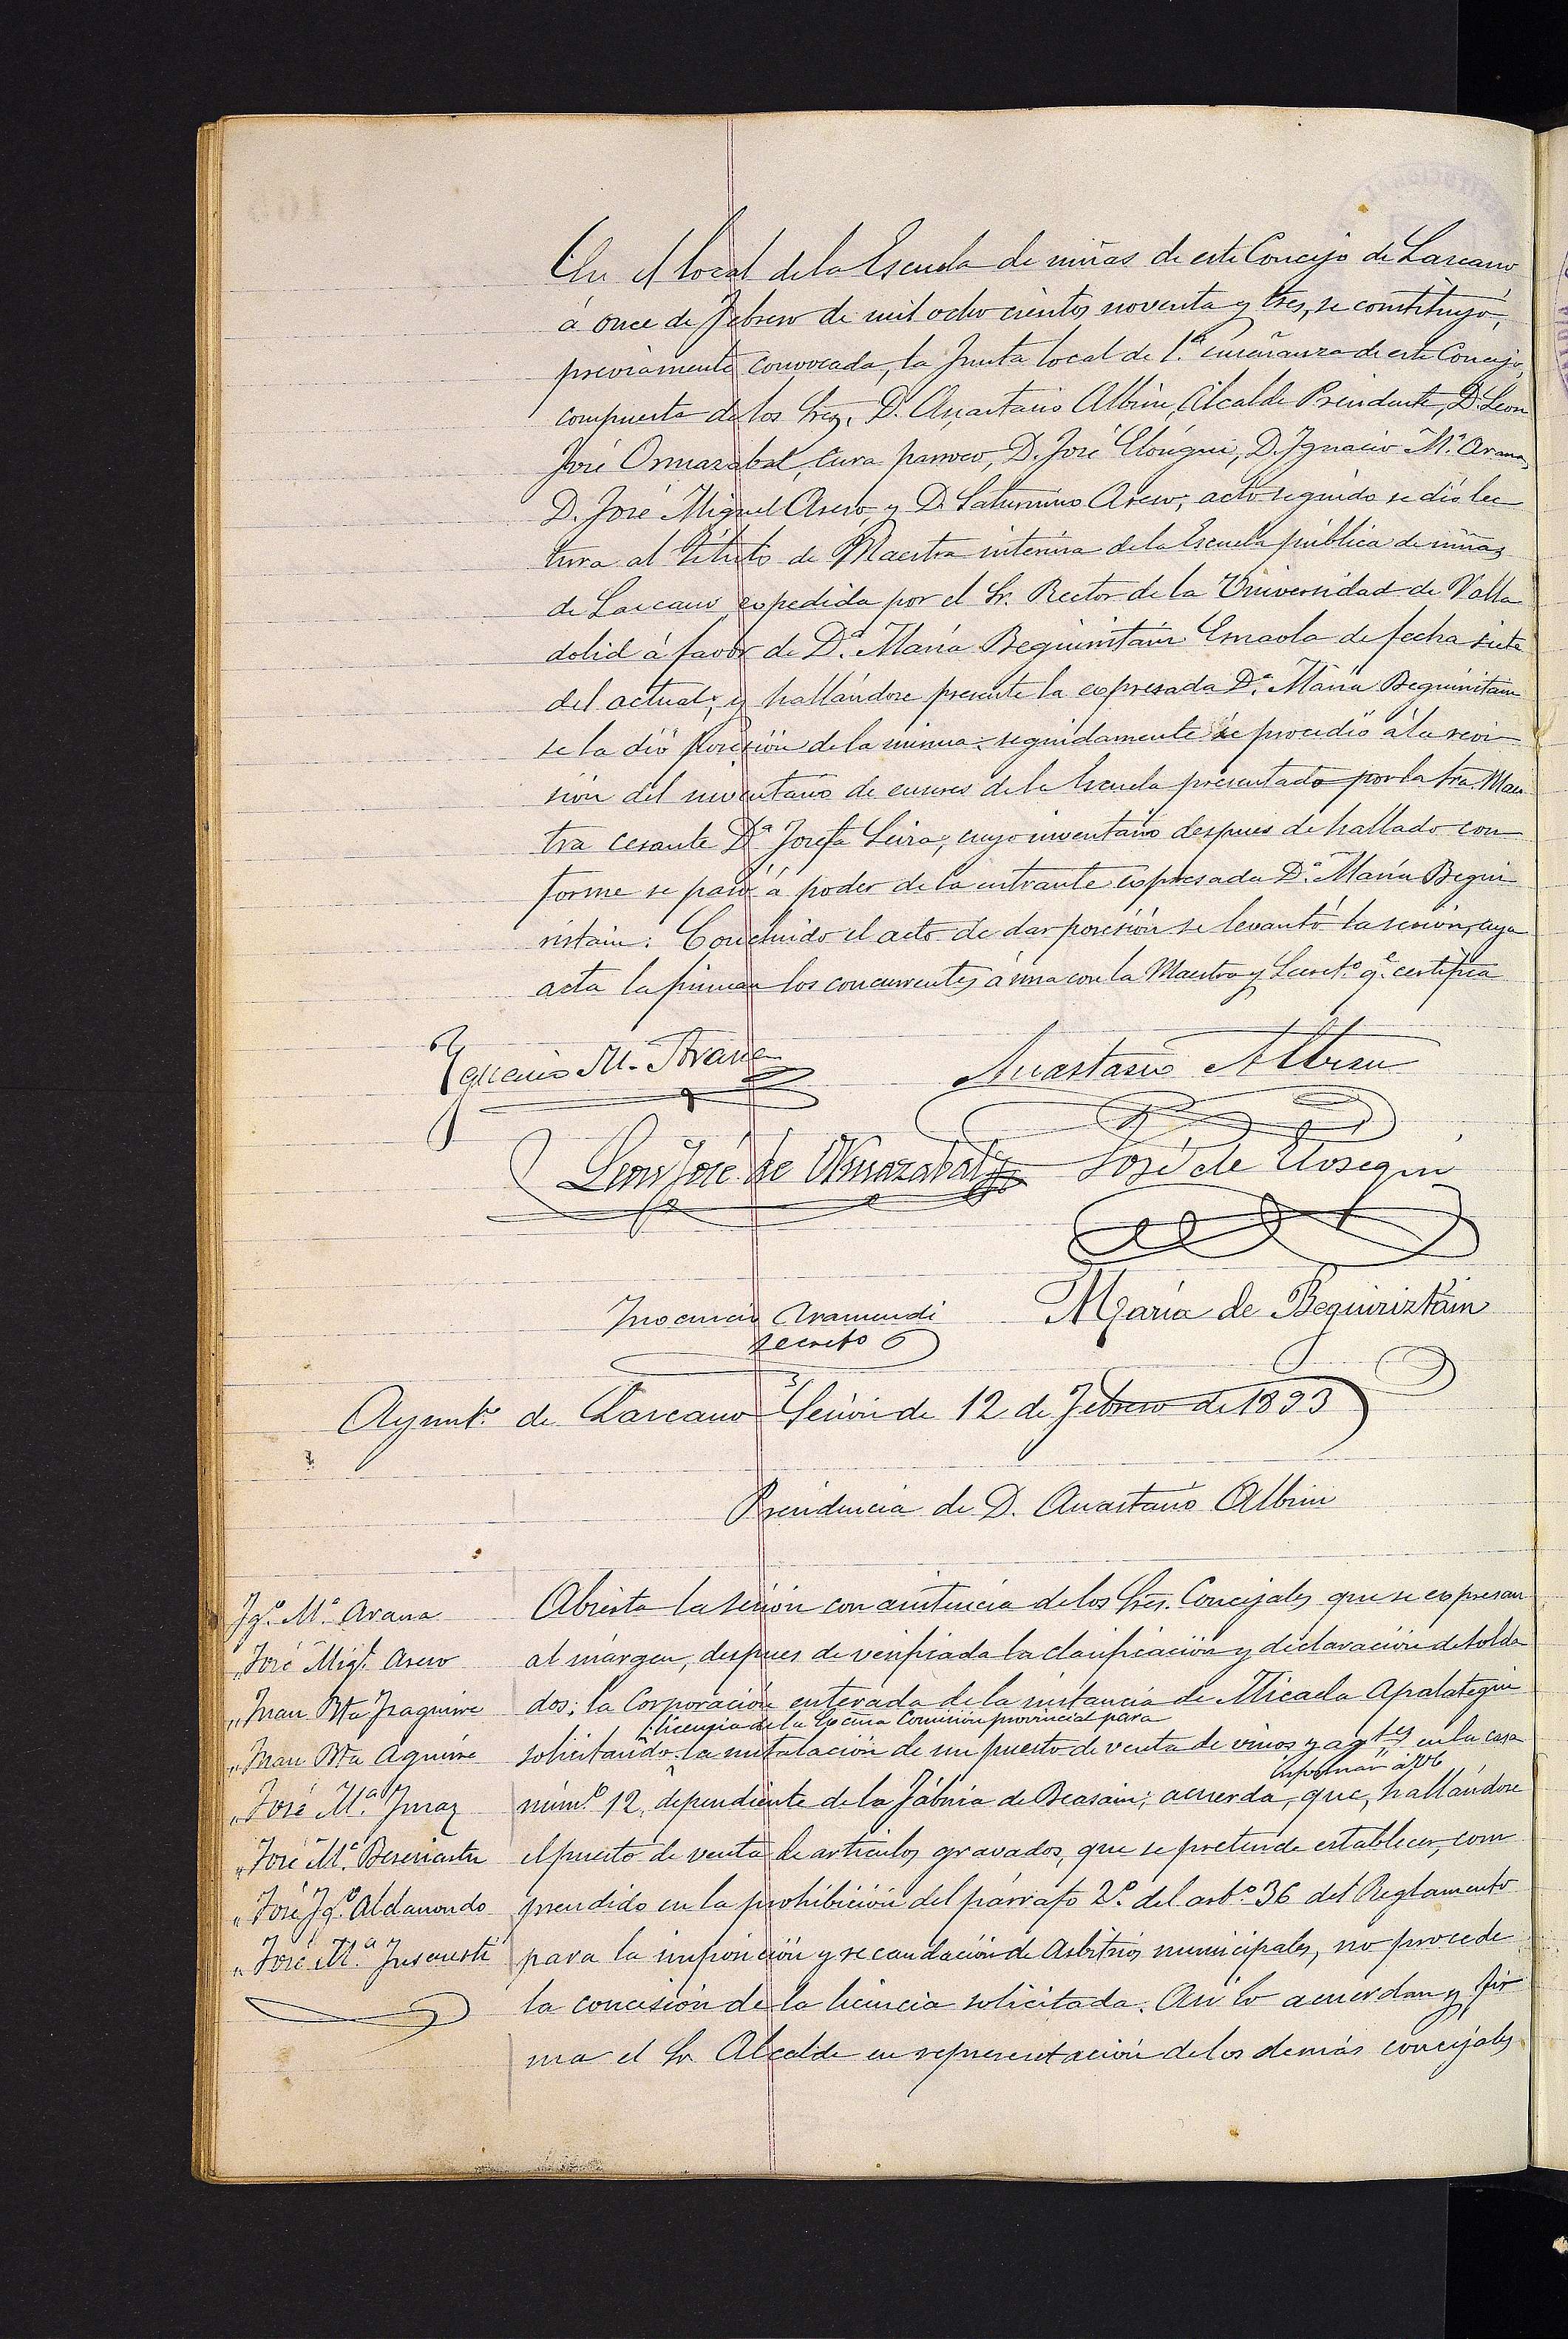 En el local de la Escuela de niñas de este Concejo de Lazcano
á once de Febrero de mil ochocientos noventa y tres, se constituyó,
previamente convocada, la Junta local de 1.ª enseñanza de este Concejo,
compuesta de los Sres. D. Anastasio Albisu, Alcalde Presidente, D. Leon
José Ormazabal, cura párroco, D. José Elósegui, D. Ignacio M.ª Arana,
D. José Miguel Aseso, y D. Saturnino Aseso; acto seguido se dió lec
tura al título de Maestra interina de la Escuela pública de niñas
de Lazcano, expedida por el Sr. Rector de la Universidad de Valla
dolid á favor de D.ª María Beguiristain Ernaola de fecha siete
del actual; y hallándose presente la expresada D.ª María Beguiristain
se la dió posesión de la misma: seguidamente se procedió á la revi
sión del inventario de enseres de la Escuela presentado por la Sra. Maes
tra cesante D.ª Josefa Leiza; cuyo inventario despues de hallado con
forme se pasó á poder de la entrante expresada D.ª María Begui
ristain. Concluido el acto de dar posesión se levantó la sesión, cuya
acta la firman los concurrentes á una con la Maestra y Secret.º q.e certifica
Ignacio M. Arana
Anastasio Albisu
Leon José de Ormazabal
José de Elosegui
Inocencio Aramendi
secreto
María de Beguiriztáin
Ayunt.º de Lazcano Sesión de 12 de Febrero de 1893
Presidencia de D. Anastasio Albisu
Ig.º M.ª Arana
„ José Mig.l Aseso
„ Juan Bta Iraguirre
„ Juan Bta Aguirre
„ José M.ª Imaz
„ José M.ª Beseriartu
„ José Ig.º Aldanondo
„ José M.ª Insausti
Abierta la sesión con asistencia de los Sres. Concejales que se expresan
al márgen, despues de verificada la clasificación y declaración de solda
dos; la Corporación enterada de la instancia de Micaela Apalategui
licencia de la Excma Comisión provincial para
solicitando la instalación de un puesto de venta de vinos y agtes en la casa
informar á
núm.º 12, dependiente de la Fábrica de Beasain; acuerda, que, hallándose
el puesto de venta de artículos gravados, que se pretende establecer, com
prendido en la prohibición del párrafo 2.º del art.º 36 del Reglamento
para la imposición y recaudación de Arbitrios municipales, no procede
la concesión de la licencia solicitada. Asi lo acuerdan y fir
ma el Sr. Alcalde en representación de los demás concejales